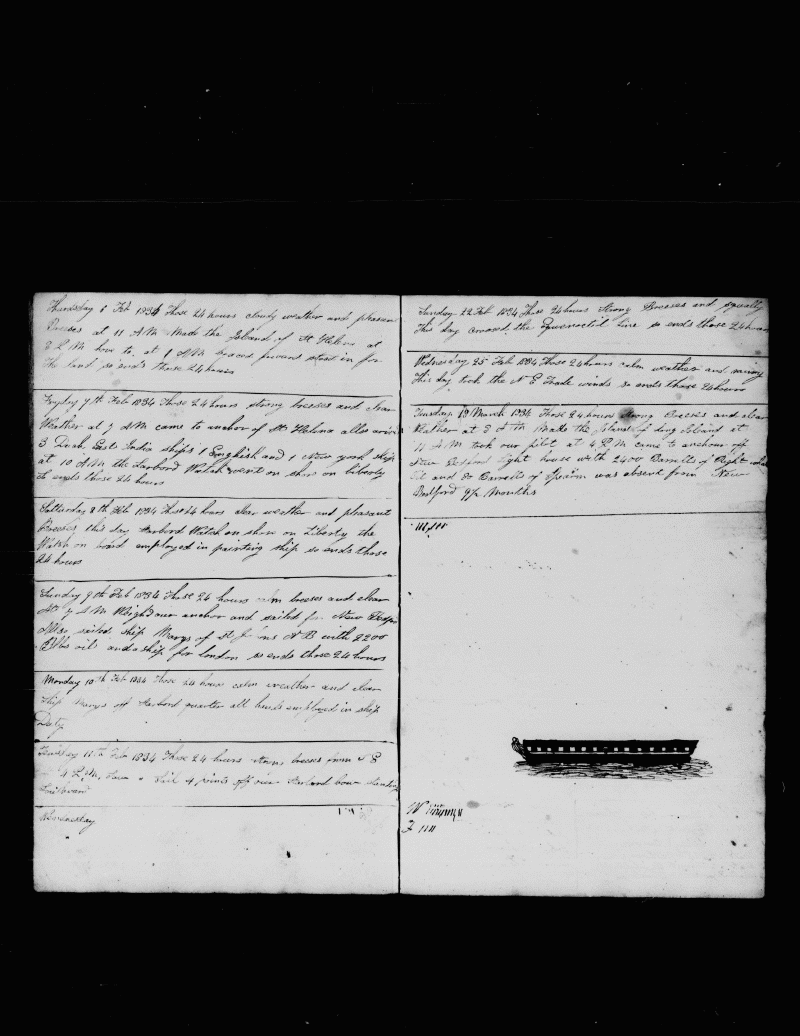 Thursday 6 Feb 1834 Those 24 hours cloudy weather and pleasant
Breeses at 11 A.M. Made the Island of St Helena at
8 P.M. hove to. at 1 A.M. braced forward stood in for
The land so ends those 24 hours
Fryday 7th Feb 1834 Those 24 hours strong breeses and clear
Weather at 7 A M came to anchor of St Helena
3 Duch East India ships 1 English and 1 New york ship
at 10 A.M. the Larbord Watch went on shore on liberty
so ends those 24 hours
Satturday 8th Feb 1834 Those 24 hours clear weather and pleasant
Breeses this day Starbord Watch on shore on Liberty the
Watch on board employed in painting ship so ends those
24 hours
Sunday 9th Feb 1834 Those 24 hours calm breeses and clear
At 7 A M Weighd our anchor and sailed for New
Allso sailed ship Marys of St Johns N B with 2200
Bbls oil and a ship for london so ends those 24 hours
Monday 10th Feb 1834 Those 24 hours calm weather and clear
Ship Marys off Starbord quarter all hands employed in ship
Duty
Tuesday 11th Feb 1834 Those 24 hours strong breeses from S E
4 P.M. saw a sail 4 points off our Starbord bow standing
Wednesday
Sunday 22 Feb 1834 Those 24 hours Strong Breeses and squally
This day crossed the Equenoctial Line so ends those 24 hours
Wednesday 25 Feb 1834 Those 24 hours calm weather and rainy
This day took the N E Trade winds so ends those 24 hours
Tuesday 18 March 1834 Those 24 hours Strong Breeses and clear
Weather at 5 A M Made the Island of Long Island at
11 A M took our pilot at 4 P.M came to anchour off
New Bedford light house with 2400 Barrels of Right whale
Oil and 80 Barrels of Sparm was absent from New
Bedford 9½ Months